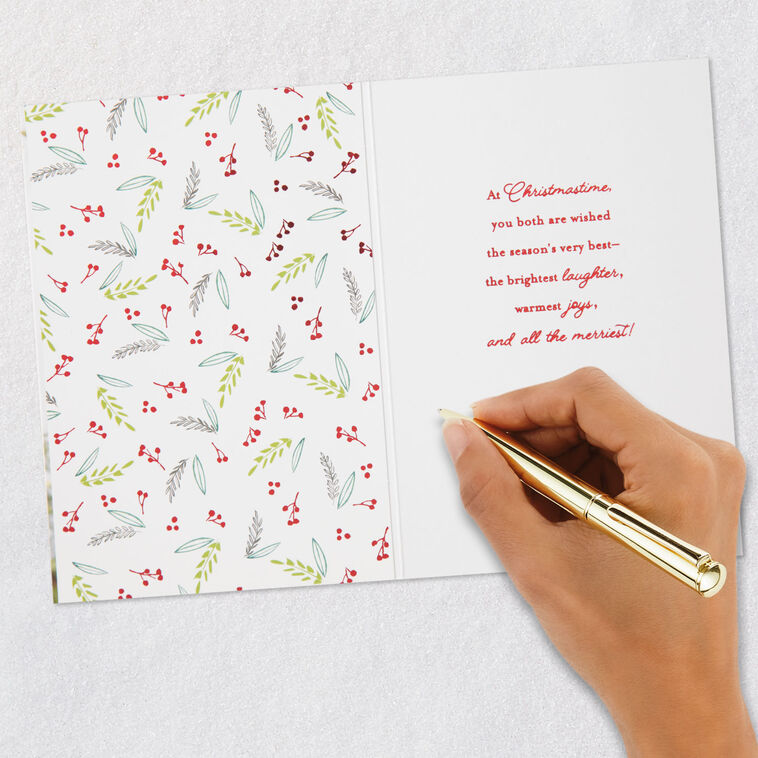 At Christmastime,
you both are wished
the season's very best—
the brightest laughter,
warmest joys,
and all the merriest!